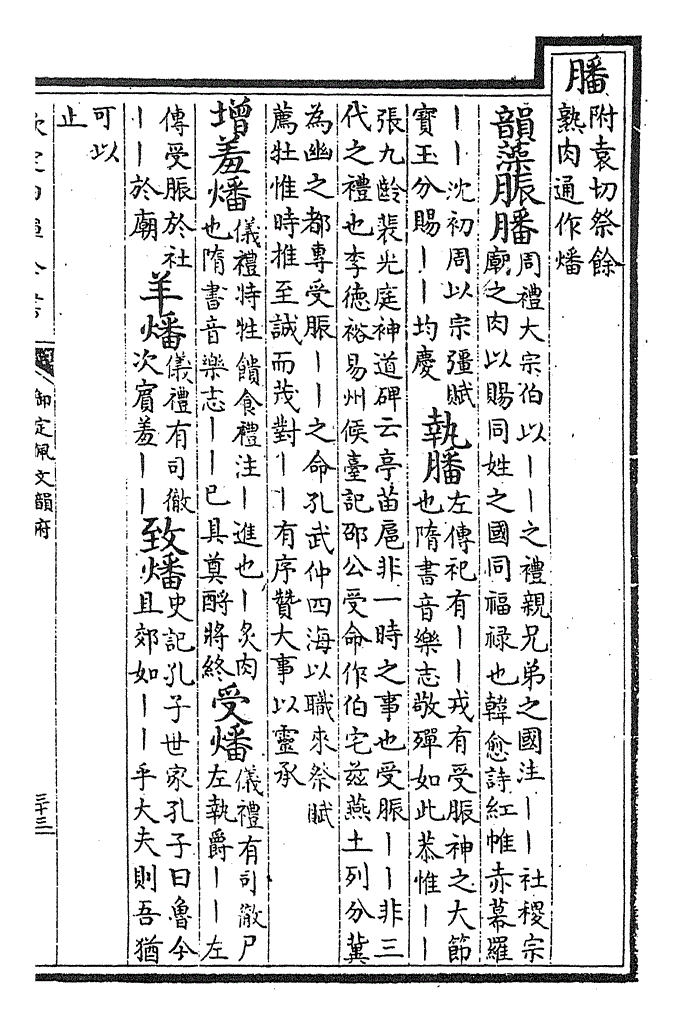 膰
附袁切祭餘
熟肉通作燔
韻藻脤膰周禮大宗伯以丨丨之禮親兄弟之國注丨丨社稷宗
廟之肉以賜同姓之國同福禄也韓愈詩紅帷赤幕羅
丨丨沈初周以宗彊賦
寳玉分賜丨丨均慶
執膰左傳祀有丨丨戎有受脤神之大節
也隋書音樂志敬殫如此恭惟丨丨
張九齡裴光庭神道碑云亭苗扈非一時之事也受脤丨丨非三
代之禮也李德裕易州候臺記邵公受命作伯宅兹燕土列分冀
為幽之都專受脤丨丨之命孔武仲四海以職來祭賦
薦牡惟時推至誠而茂對丨丨有序贊大事以靈承
增羞燔儀禮特牲饋食禮注丨進也丨炙肉
也隋書音樂志丨丨已具奠酹將終
受燔儀禮有司徹尸
左執爵丨丨左
傳受脤於社
丨丨於廟
羊燔儀禮有司徹
次賓羞丨丨
致燔史記孔子世家孔子曰魯今
且郊如丨丨乎大夫則吾猶
可以
止
御定佩文韻府
三十三